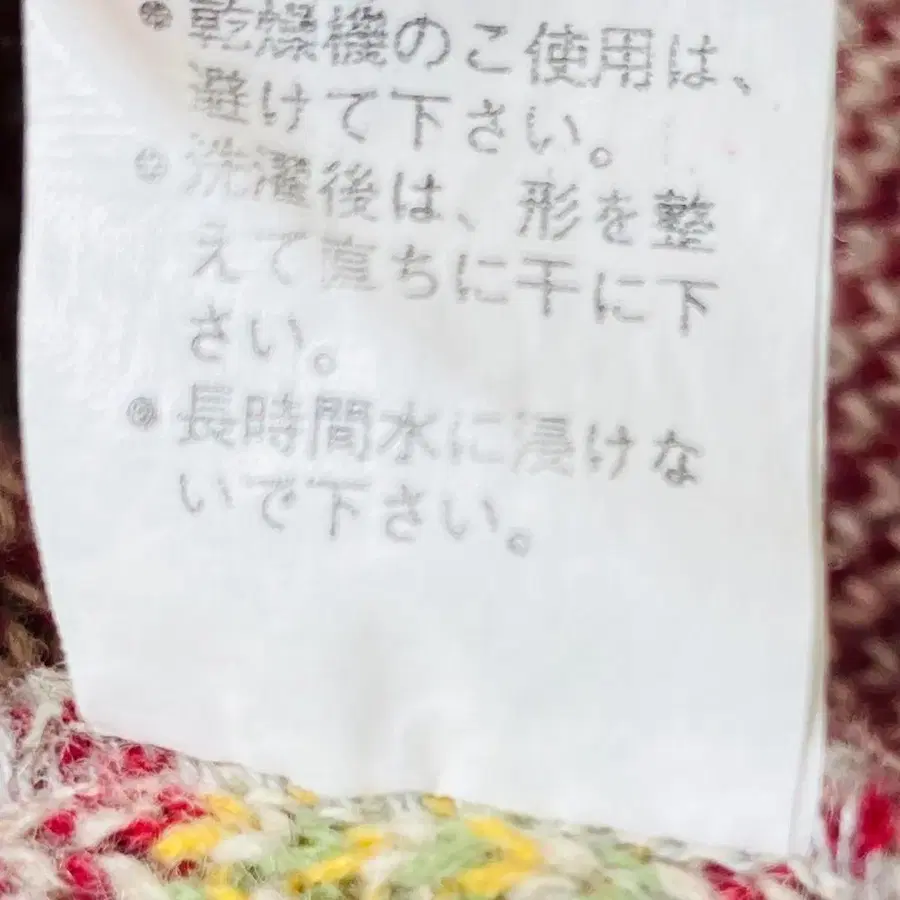 ◉乾燥機のこ使用は、
避けて下さい。
◉洗濯後は、形を整
えて直ちに干に下
さい。
◉長時間水に浸けな
いで下さい。